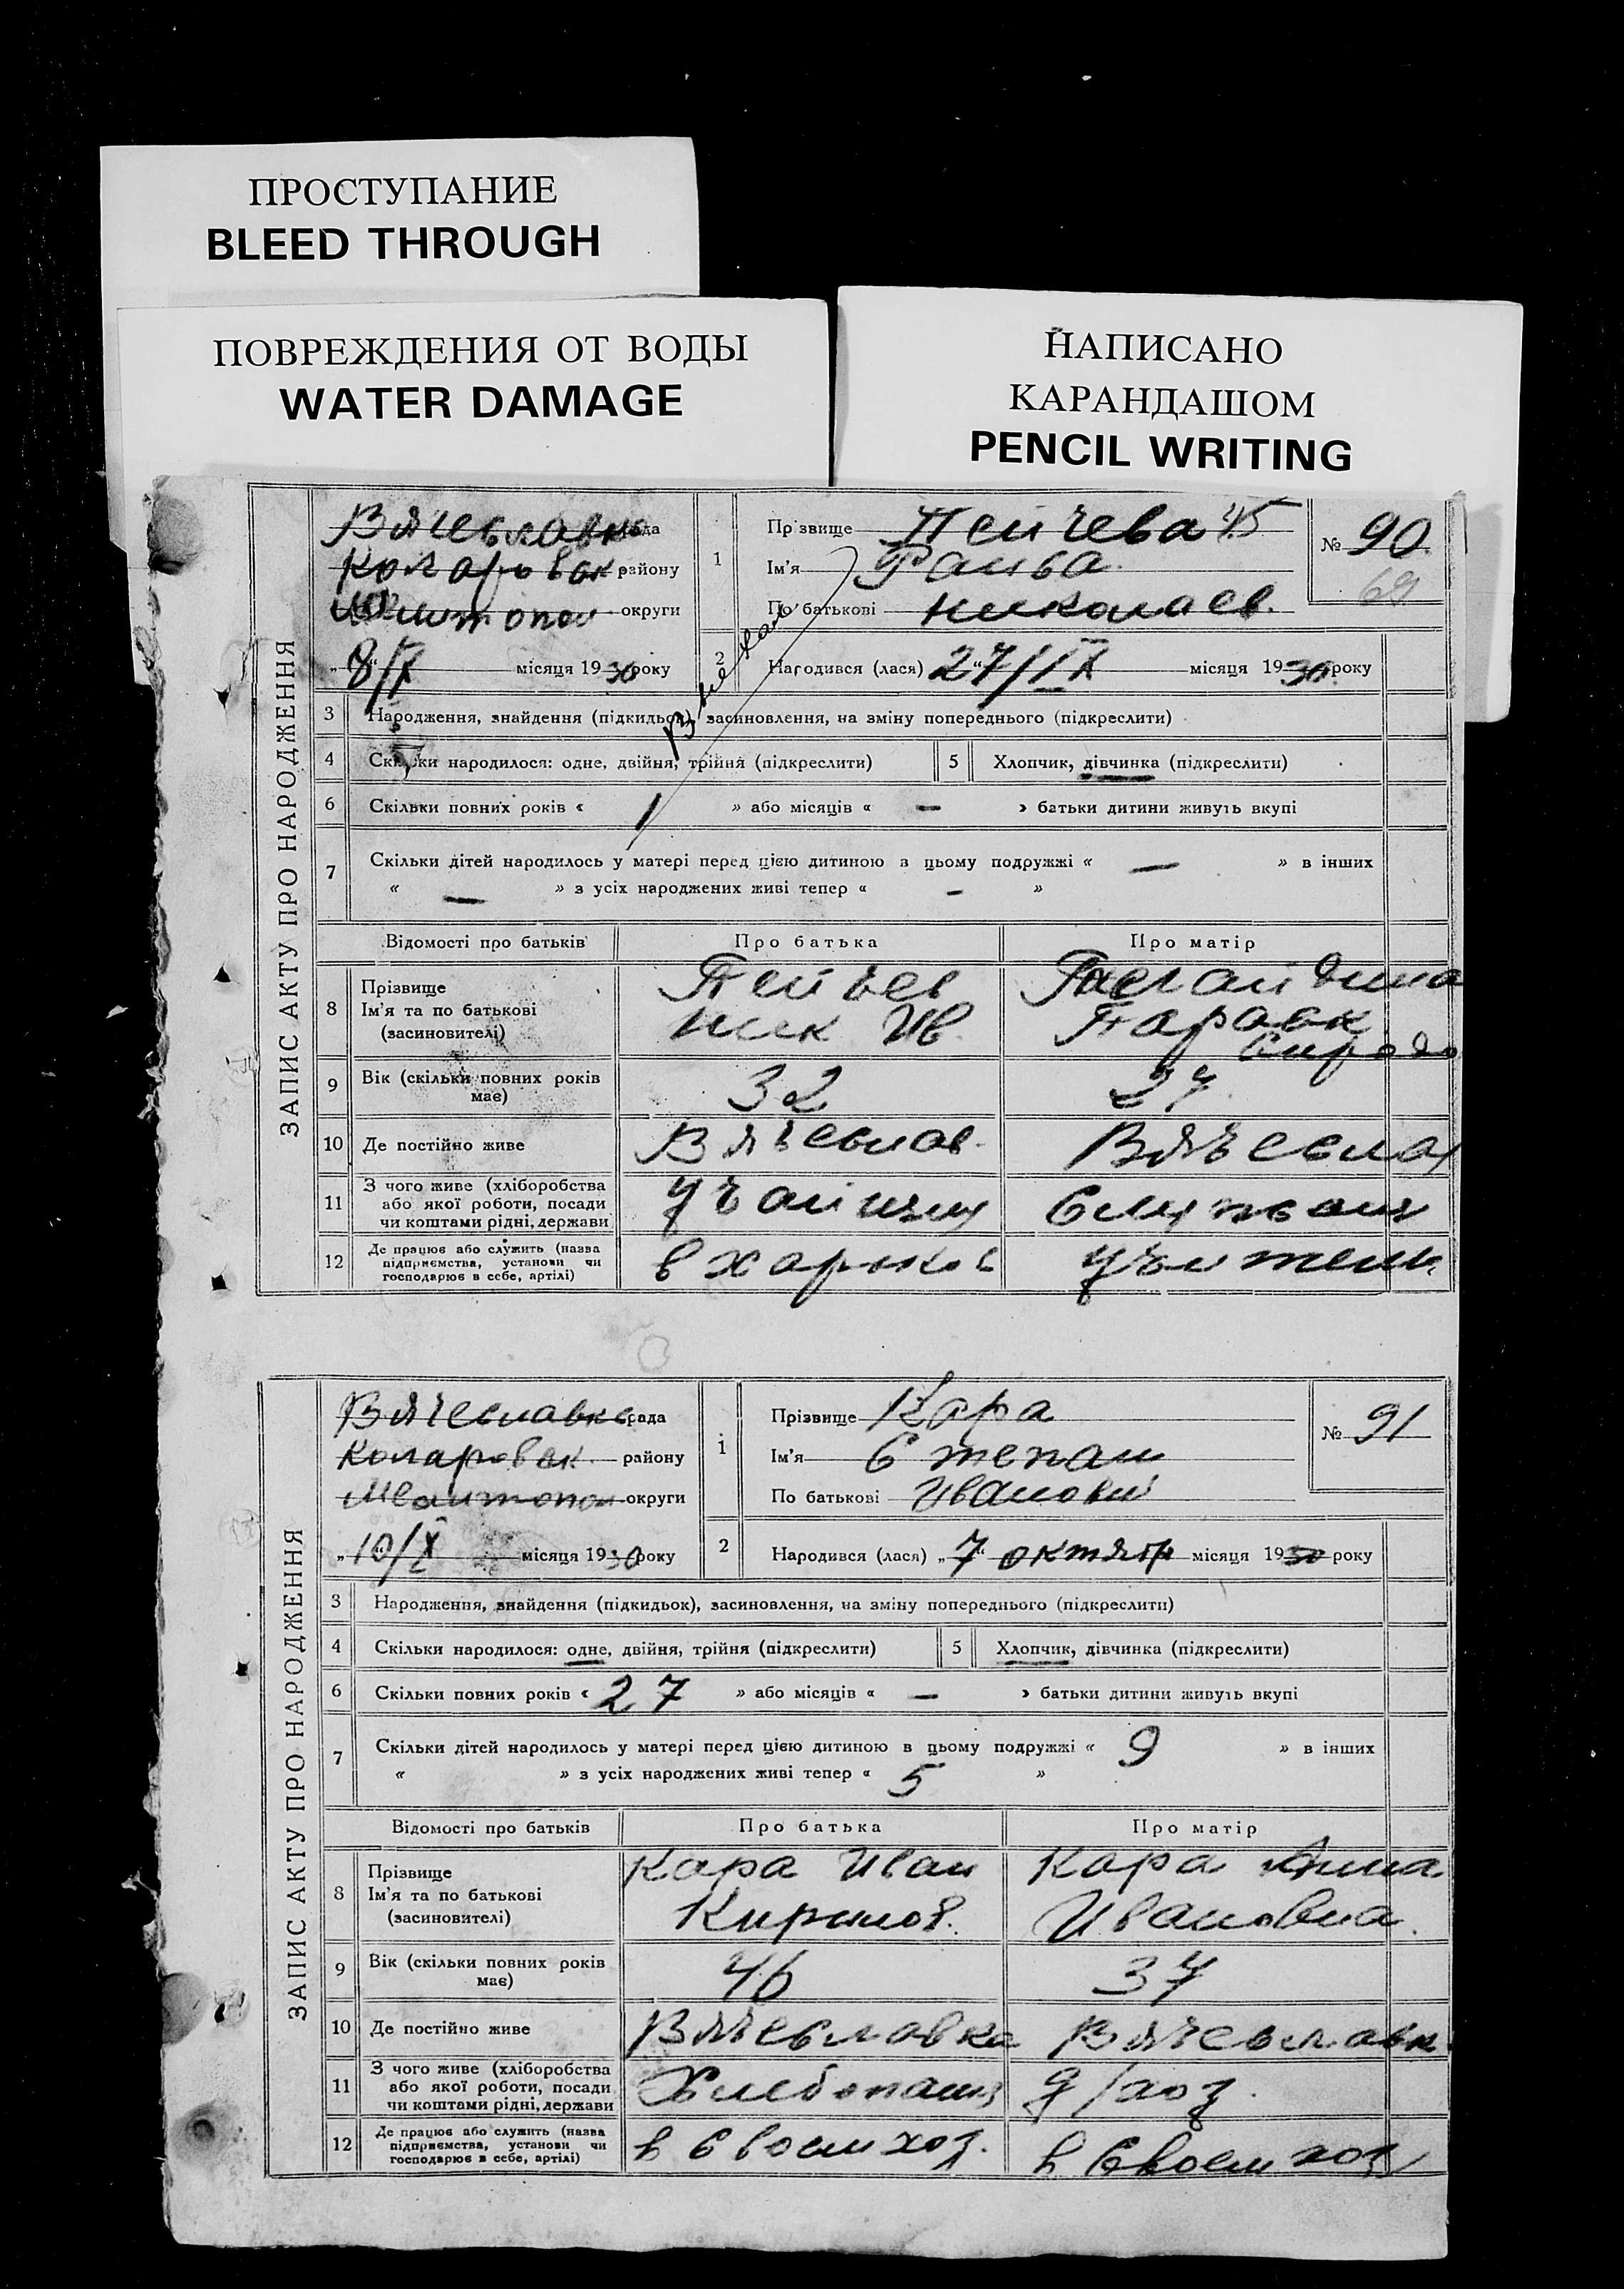 ПРОСТУПАНИЕ
BLEED THROUGH
ПОВРЕЖДЕНИЯ ОТ ВОДЫ
WATER DAMAGE
НАПИСАНО
КАРАНДАШОМ
PENCIL WRITING
ЗАПИС АКТУ ПРО НАРОДЖЕННЯ
Вячеславк рада
Коларовск району
округи
„8/X місяця 1930 року
1
Прізвище Пейчева 45
Ім'я
По батькові Николаев.
№ 90
2
Народився (лася) „27/IX місяця 1930 року
3 Народження, знайдення (підкидьок), засиновлення, на зміну попереднього (підкреслити)
4 Скільки народилося: одне, двійня, трійня (підкреслити)
5 Хлопчик, дівчинка (підкреслити)
6 Скільки повних років « 1 » або місяців « — » батьки дитини живуть вкупі
7 Скільки дітей народилось у матері перед цією дитиною в цьому подружжі « — » в інших
« — » з усіх народжених живі тепер « - »
Відомості про батьків Про батька Про матір
8 Прізвище
Ім'я та по батькові
(засновителі)
Пейчев
Ник Ив.
9 Вік (скільки повних років
має)
32
27
10 Де постійно живе Вячеслав. Вячеслав
11 З чого живе (хліборобства
або якої роботи, посади
чи коштами рідні, держави
12 Де працює або служить (назва
підприємства, установи чи
господарює в себе, артілі)
в Харьков
ЗАПИС АКТУ ПРО НАРОДЖЕННЯ
Вячеславка рада
Коларовск. району
Мелитопол округи
„10/X місяця 1930 року
1
Прізвище Кара
Ім'я Степан
По батькові Иванови
№ 91
2
Народився (лася) „7“ октябр місяця 1930 року
3 Народження, знайдення (підкидьок), засиновлення, на зміну попереднього (підкреслити)
4 Скільки народилося: одне, двійня, трійня (підкреслити)
5 Хлопчик, дівчинка (підкреслити)
6 Скільки повних років « 27 » або місяців « — » батьки дитини живуть вкупі
7 Скільки дітей народилось у матері перед цією дитиною в цьому подружжі « 9 » в інших
« » з усіх народжених живі тепер « 5 »
Відомості про батьків Про батька Про матір
8 Прізвище
Ім'я та по батькові
(засиновителі)
Кара Иван
Кирилов.
Кара Анна
Ивановна.
9 Вік (скільки повних років
має)
46
37
10 Де постійно живе Вячеславка Вячеславк
11 З чого живе (хліборобства
або якої роботи, посади
чи коштами рідні, держави
Хлебопаш
д/хоз.
12 Де працює або служить (назва
підприємства, установи чи
господарює в себе, артілі)
в своем хоз.
в своем хоз